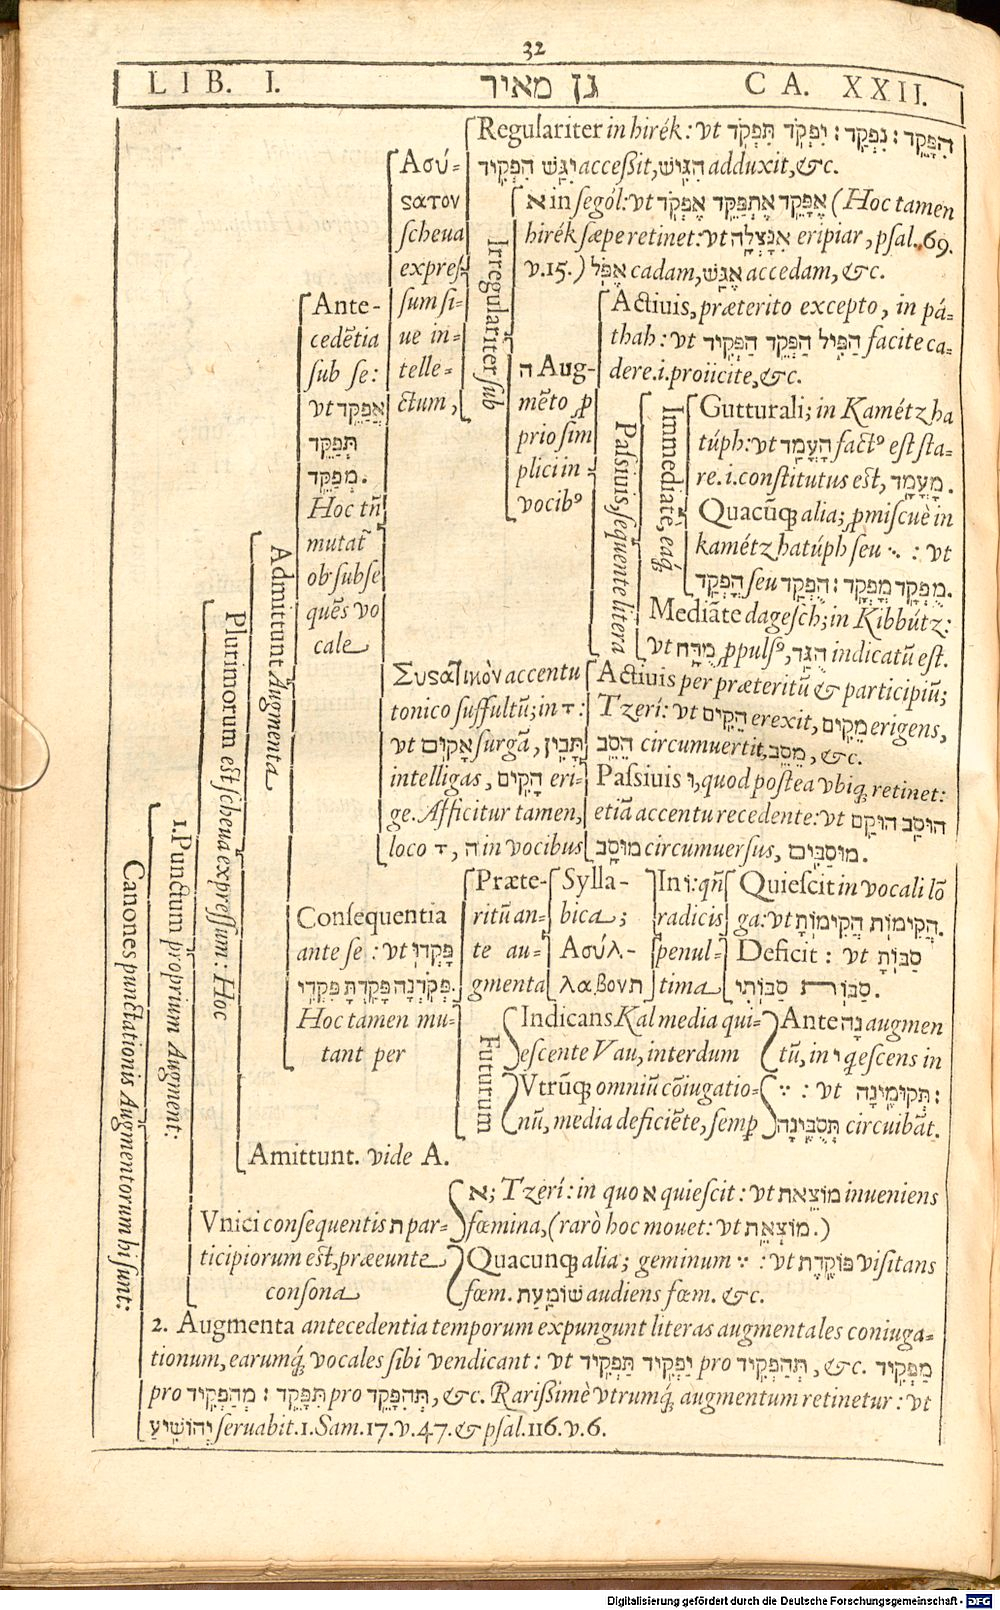 32
LIB. I. גן מאיר CA. XXII.
Canones punctationis Augmentorum hi sunt:
1. Punctum proprium Augment:
Plurimorum est scheua expressum: Hoc
Admittunt Augmenta
Ante-
cedẽtia
sub se:
vt אֲפַקֵּד
תְּפַקֵּד
מְפַקֵּד.
Hoc tñ
mutat̃
ob subse
quẽs vo
cale
Ασύ-
ςατον
scheua
expres-
sum si-
ue in-
telle-
ctum,
Regulariter in hirék: vt יִפְקֹד תִּפְקֹד : נִפְקַד : הִפָּקֵד
הִפְקִיד יִגַּשׁ accessit, הִגִּישׁ adduxit, &c.
Irregulariter sub
א in segól: vt אֶפְקֹד אֶתְפַּקֵּד אֶפָּקֵד (Hoc tamen
hirék sæpe retinet: vt אִנָּצְלָה eripiar, psal. 69.
v. 15.) אֶפֹּל cadam, אֶגַּשׁ accedam, &c.
ה Aug-
mẽto ꝓ
prio sim
plici in
vocibꝰ
Actiuis, præterito excepto, in pá-
thah: vt הַפְקִיד הַפְקֵד הַפִּיל facite ca-
dere .i. proiicite, &c.
Passiuis, sequente litera
Immediate, eaq́
Gutturali; in Kamétz ha
túph: vt הָעֳמַד factꝰ est sta-
re .i. constitutus est, מָעֳמָד.
Quacũq alia; ꝓmiscuè in
kamétz hatúph seu ֻ : vt
הָפְקַד seu הֻפְקַד : מָפְקָד מֻפְקָד.
Mediãte dagesch; in Kibbútz:
vt מֻדָּח ꝓpulsꝰ, הֻגַּד indicatũ est.
Συςατικὸν accentu
tonico suffultũ; in ָ :
vt אָקוּם surgã, תָּבִין
intelligas, הָקִים eri-
ge. Afficitur tamen,
loco ָ , ה in vocibus
Actiuis per præteritũ & participiũ;
Tzerí: vt הֵקִים erexit, מֵקִים erigens,
הֵסֵב circumuertit, מֵסֵב, &c.
Passiuis ו, quod postea vbiq retinet:
etiã accentu recedente: vt הוּקַם הוּסַב
מוּסָב circumuersus, מוּסַבִּים.
Consequentia
ante se: vt פָּקְדוּ
פָּקְדִי פָּקַדְתָּ פְּקֹדְנָה.
Hoc tamen mu-
tant per
Præte-
ritũ an-
te au-
gmenta
Sylla-
bica;
Ασύλ-
λαβον ת
In i: qñ
radicis
penul-
tima
Quiescit in vocali lõ
ga: vt הֲקִימוֹתָ הֲקִימוֹת.
Deficit: vt סַבּוֹתָ
סַבּוֹתִי סַבּוֹת.
Futurum
Indicans Kal media qui-
escente Vau, interdum
Vtrũq omniũ cõiugatio-
nũ, media deficiẽte, semꝑ
Ante נָה augmen
tũ, in י qͥescens in
ֶ : vt תְּקוּמֶינָה :
תְּסֻבֶּינָה circuibãt.
Amittunt. vide A.
Vnici consequentis ת par-
ticipiorum est, præeunte
consona
א; Tzerí: in quo א quiescit: vt מוֹצֵאת inueniens
fœmina, (rarò hoc mouet: vt מוֹצְאֵת.)
Quacunq alia; geminum ֶ : vt פּוֹקֶדֶת visitans
fœm. שׁוֹמַעַת audiens fœm. &c.
2. Augmenta antecedentia temporum expungunt literas augmentales coniuga-
tionum, earumq́ vocales sibi vendicant: vt יַפְקִיד תַּפְקִיד pro תְּהַפְקִיד, &c. מַפְקִיד
pro מְהַפְקִיד : תִּפָּקֵד pro תְּהִפָּקֵד, &c. Rarißimè vtrumq́ augmentum retinetur: vt
יְהוֹשִׁיעַ seruabit. 1. Sam. 17. v. 47. & psal. 116. v. 6.
Digitalisierung gefördert durch die Deutsche Forschungsgemeinschaft - DFG